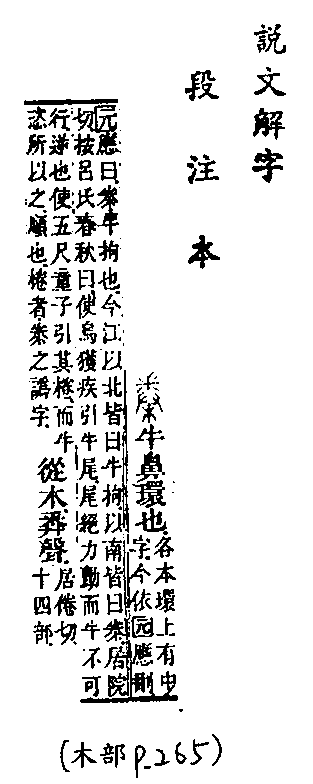 說文解字
段注本
桊牛鼻環也
各本環上有中
字今依元應刪
元應曰桊牛拘也今江以北皆曰牛拘以南皆曰桊居院
切按呂氏春秋曰使烏獲疾引牛尾尾絕力動而牛不可
行逆也使五尺童子引其棬而牛
恣所以之順也棬者桊之譌字
從木𢍏聲
居倦切
十四部
(木部p.265)